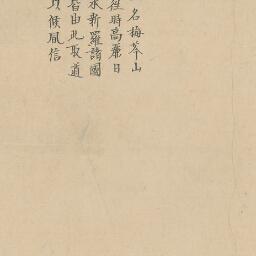 名梅岑山
往時高麗日
本新羅諸國
皆由此取道
以候風信